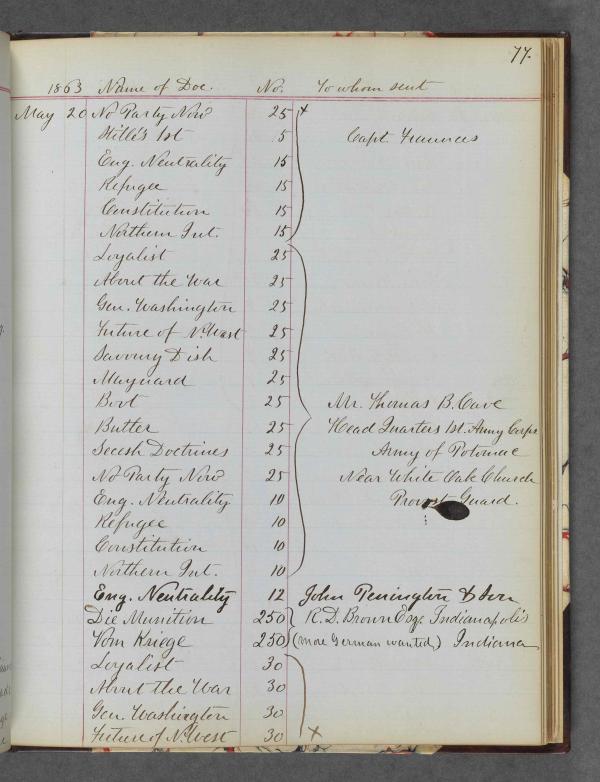 77.
1863 Name of Doc. No. To whom sent
May 20 No Party Now 25 x
Hille's 1st 5 Capt.
Eng. Neutrality 15
Refugee 15
Constitution 15
Northern Int. 15
Loyalist 25
About the War 25
Gen. Washington 25
Future of N. West 25
Savoury Dish 25
Maynard 25
Boot 25 Mr. Thomas B. Cave
Butler 25 Head Quarters 1st. Army Corps
Secesh Doctrines 25 Army of Potomac
No Party Now 25 Near White Oak Church
Eng. Neutrality 10 Provost Guard.
Refugee 10
Constitution 10
Northern Int. 10
Eng. Neutrality 12 John Penington & Son
Die Munition 250 R. D. Brown Esq. Indianapolis
Vom Kriege 250 (more German wanted) Indiana
Loyalist 30
About the War 30
Gen. Washington 30
Future of N. West 30 x